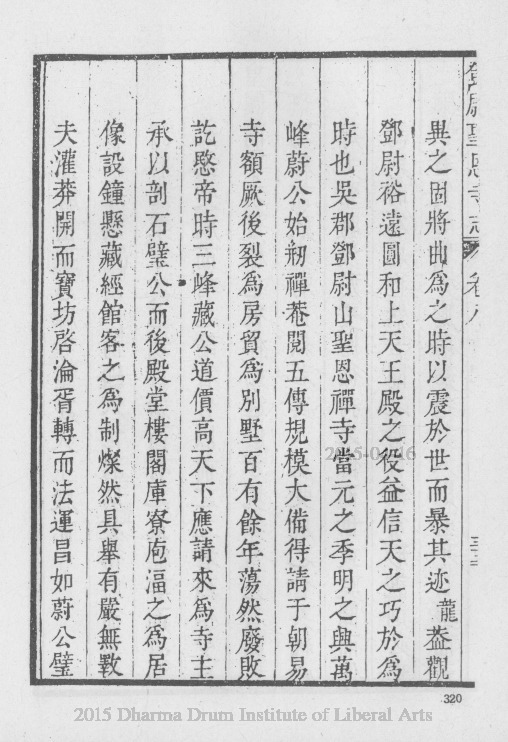 鄧尉聖恩寺志 卷八
異之固將曲爲之時以震於世而暴其迹龍葢觀
鄧尉裕遠圓和上天王殿之役益信天之巧於爲
時也吳郡鄧尉山聖恩禪寺當元之季明之興萬
峰蔚公始剏禪菴閱五傳規模大備得請于朝易
寺額厥後裂爲房貿爲別墅百有餘年蕩然廢敗
訖愍帝時三峰藏公道價高天下應請來爲寺主
承以剖石璧公而後殿堂樓閣庫寮庖湢之爲居
像設鐘懸藏經館客之爲制燦然具舉有嚴無斁
夫灌莽開而寶坊啓淪胥轉而法運昌如蔚公璧
320
2015 Dharma Drum Institute of Liberal Arts